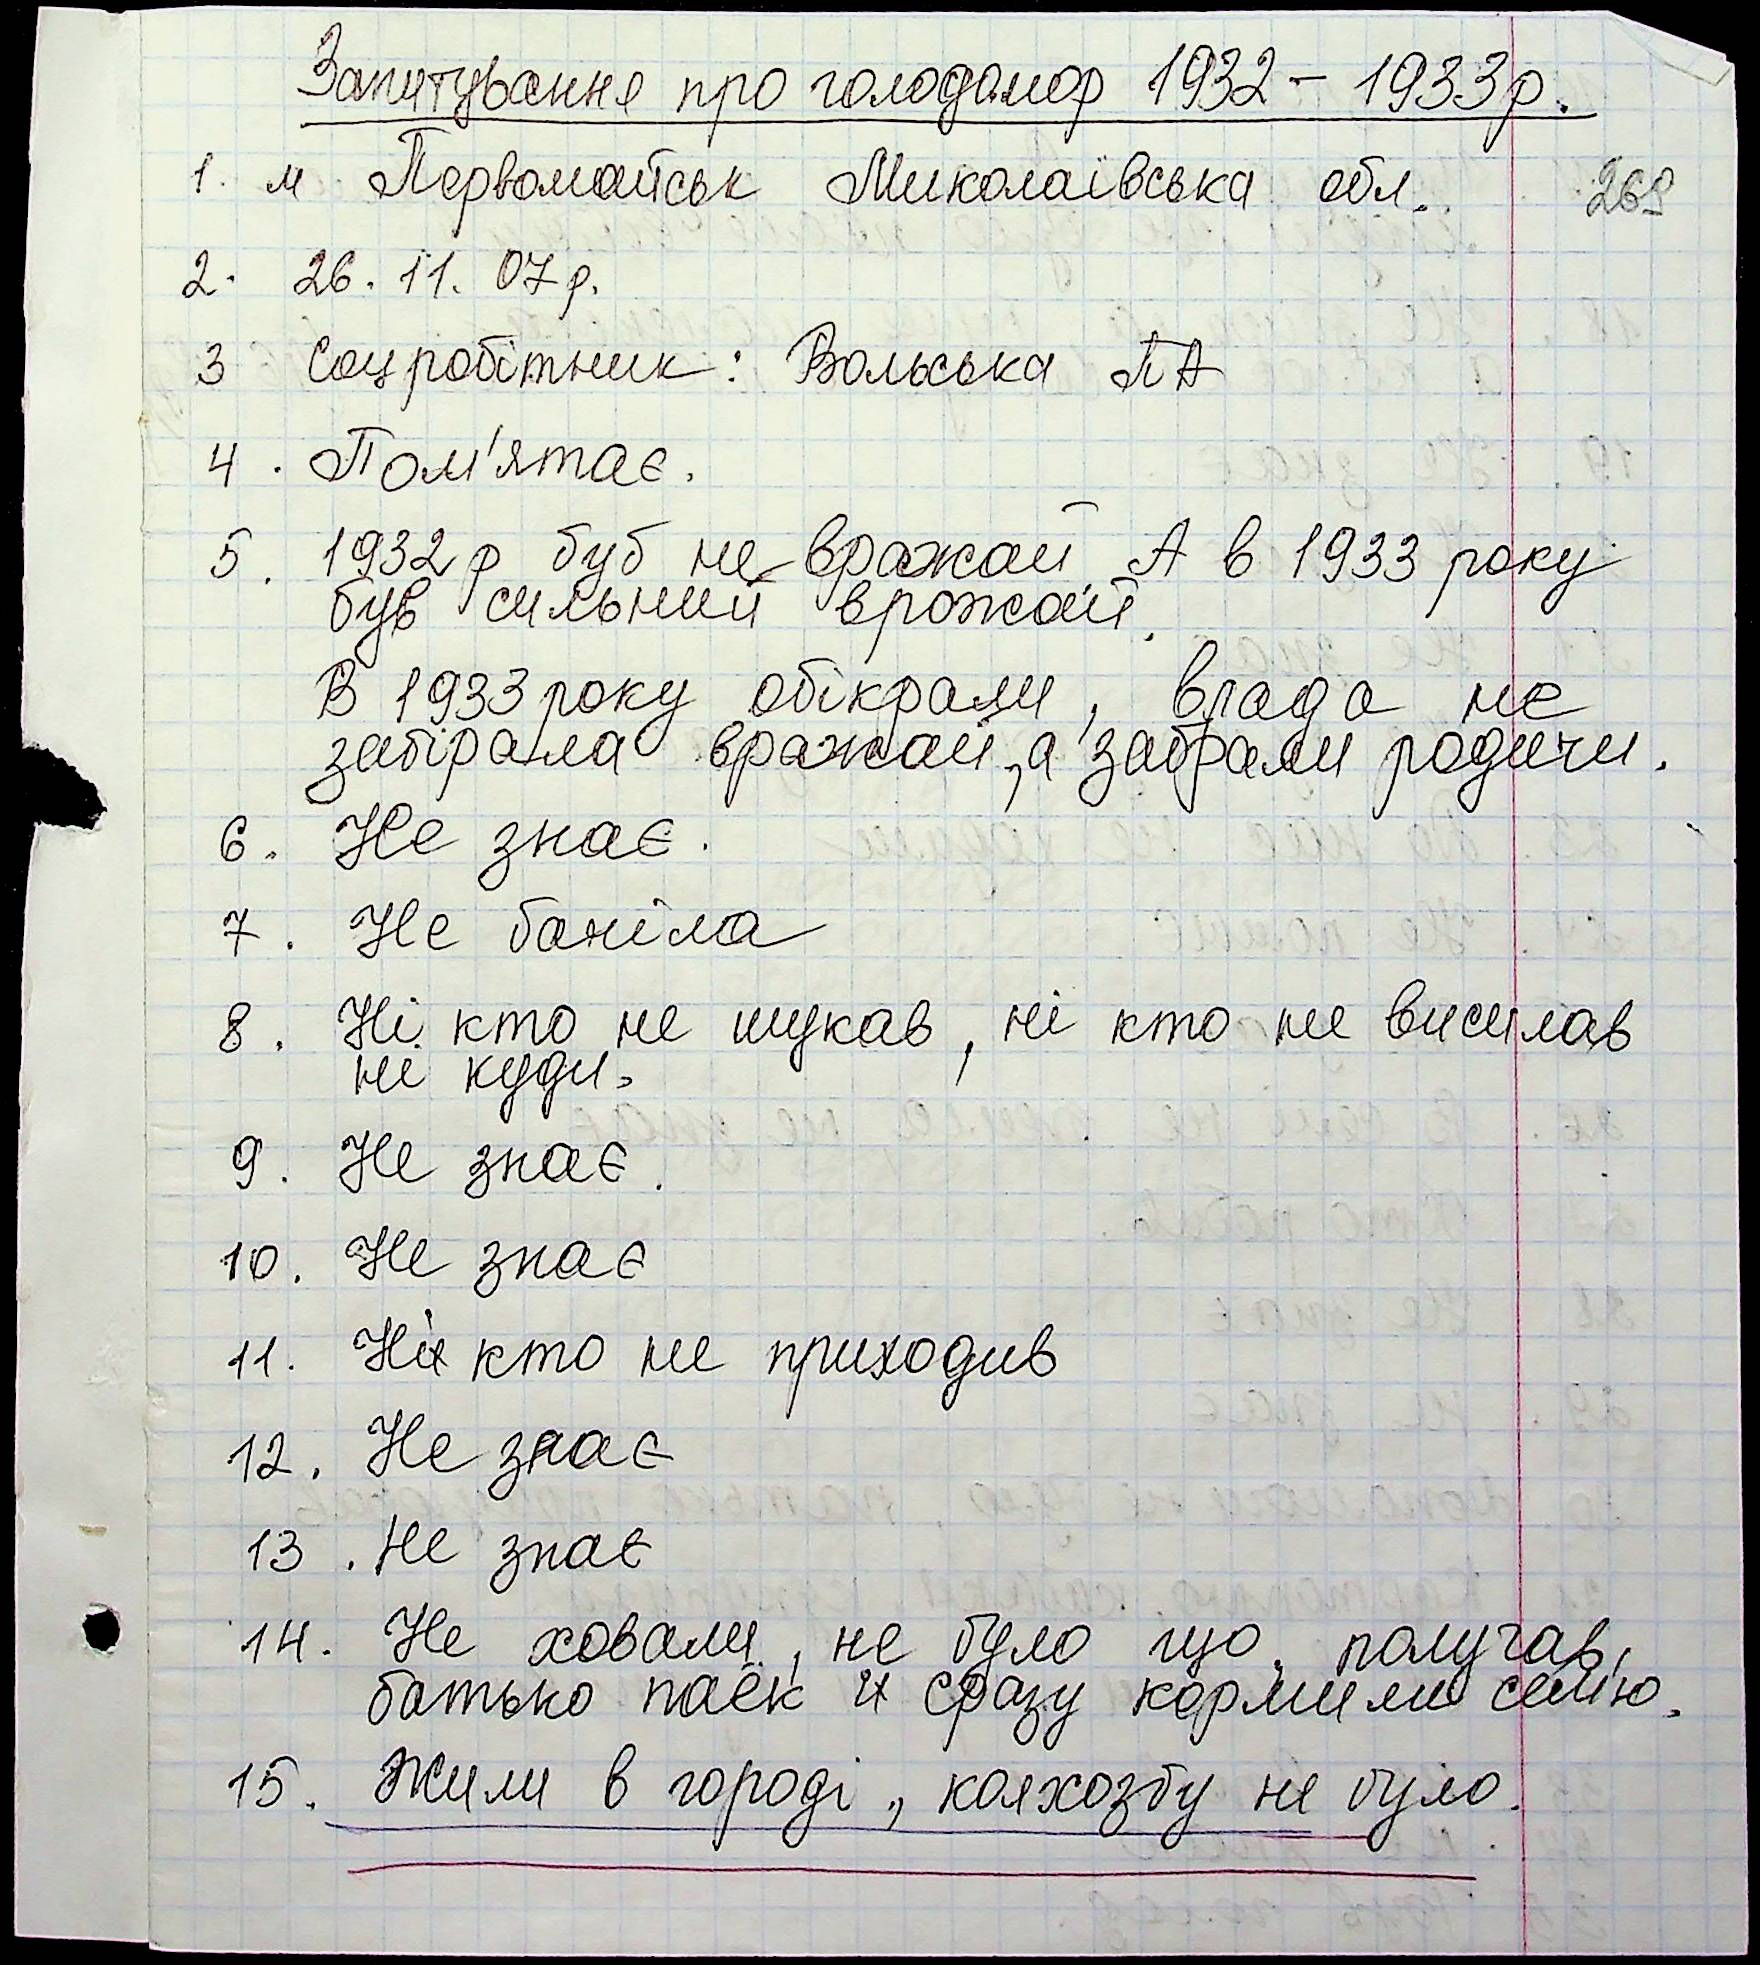 Запитування про голодомор 1932 - 1933р.
1. м Первомайськ Миколаївська обл.
269
2. 26. 11. 07р.
3 Соцробітник: Вольська ЛА
4. Пом'ятає.
5. 1932р буб не вражай. А в 1933 року
був сильний врожай.
В 1933 року обікрали, влада не
забірала вражай, а забрали родичи.
6. Не знає.
7. Не бачіла
8. Ні кто не шукав, ні кто не висилав
ні куди.
9. Не знає.
10. Не знає
11. Ні кто не приходив
12. Не знає
13. Не знає
14. Не ховали, не було що, получав,
батько паёк и сразу кормили семю.
15. Жили в городі, колхозбу не було.